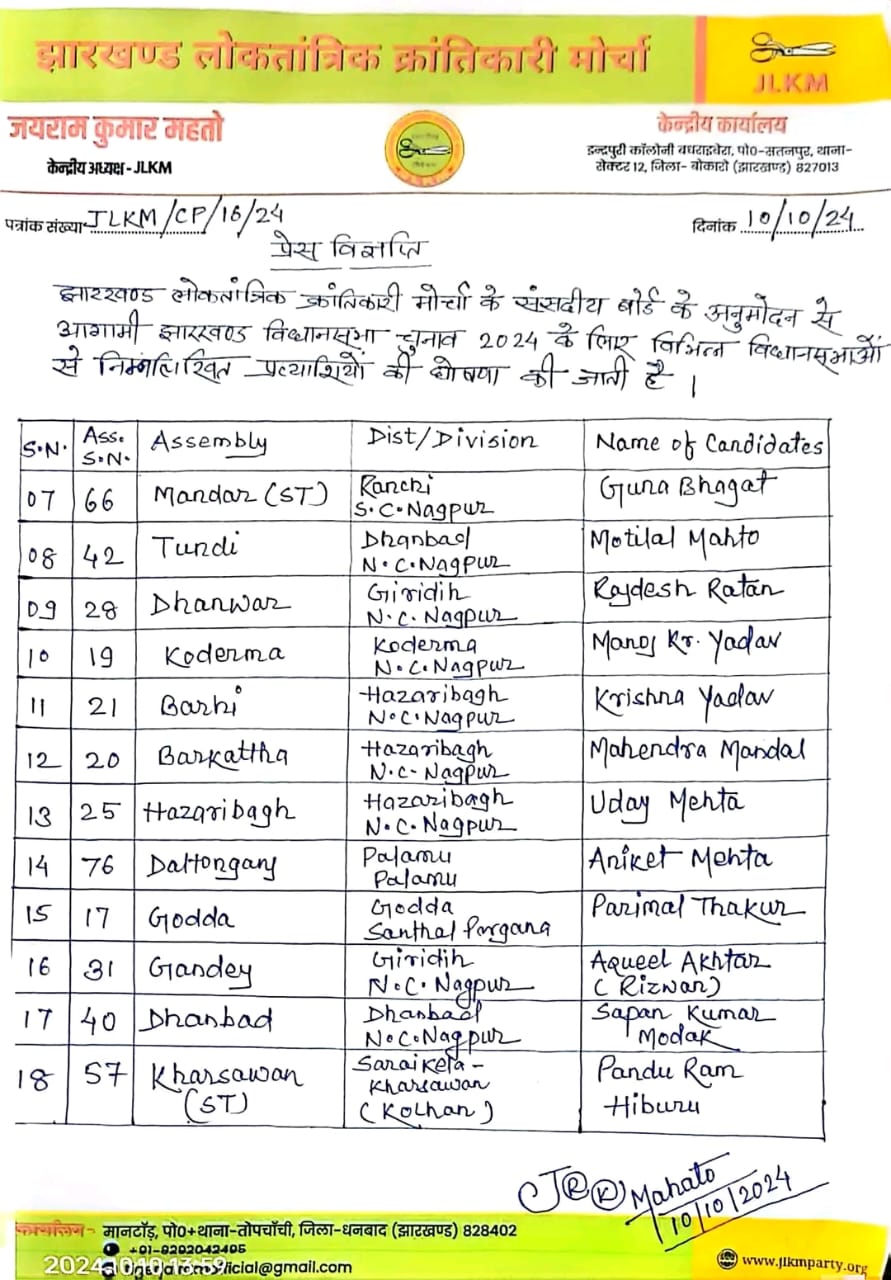 झारखण्ड लोकतांत्रिक क्रांतिकारी मोर्चा
JLKM
जयराम कुमार महतो
केन्द्रीय अध्यक्ष - JLKM
केन्द्रीय कार्यालय
इन्द्रपुरी कॉलोनी बधराबेरा, पो0-सतनपुर, थाना-
सेक्टर 12, जिला- बोकारो (झारखण्ड) 827013
पत्रांक संख्या JLKM/CP/16/24
दिनांक 10/10/24
प्रेस विज्ञप्ति
झारखण्ड लोकतांत्रिक क्रांतिकारी मोर्चा के संसदीय बोर्ड के अनुमोदन से
आगामी झारखण्ड विधानसभा चुनाव 2024 के लिए विभिन्न विधानसभाओं
से निम्नलिखित प्रत्याशियों की घोषणा की जाती है ।
S.N. Ass. S.N. Assembly Dist/Division Name of Candidates
07 66 Mandar (ST) Ranchi S.C.Nagpur Guna Bhagat
08 42 Tundi Dhanbad N.C.Nagpur Motilal Mahto
09 28 Dhanwar Giridih N.C.Nagpur Rajdesh Ratan
10 19 Koderma Koderma N.C.Nagpur Manoj Kr. Yadav
11 21 Barhi Hazaribagh N.C.Nagpur Krishna Yadav
12 20 Barkattha Hazaribagh N.C-Nagpur Mahendra Mandal
13 25 Hazaribagh Hazaribagh N.C.Nagpur Uday Mehta
14 76 Daltonganj Palamu Palamu Aniket Mehta
15 17 Godda Godda Santhal Pargana Parimal Thakur
16 31 Gandey Giridih N.C.Nagpur Aqueel Akhtar (Rizwan)
17 40 Dhanbad Dhanbad N.C.Nagpur Sapan Kumar Modak
18 57 Kharsawan (ST) Saraikela- Kharsawan (Kolhan) Pandu Ram Hiburu
JRK Mahato
10/10/2024
कार्यालय- मानटाँड़, पो0+थाना-तोपचाँची, जिला-धनबाद (झारखण्ड) 828402
2024
www.jlkmparty.org